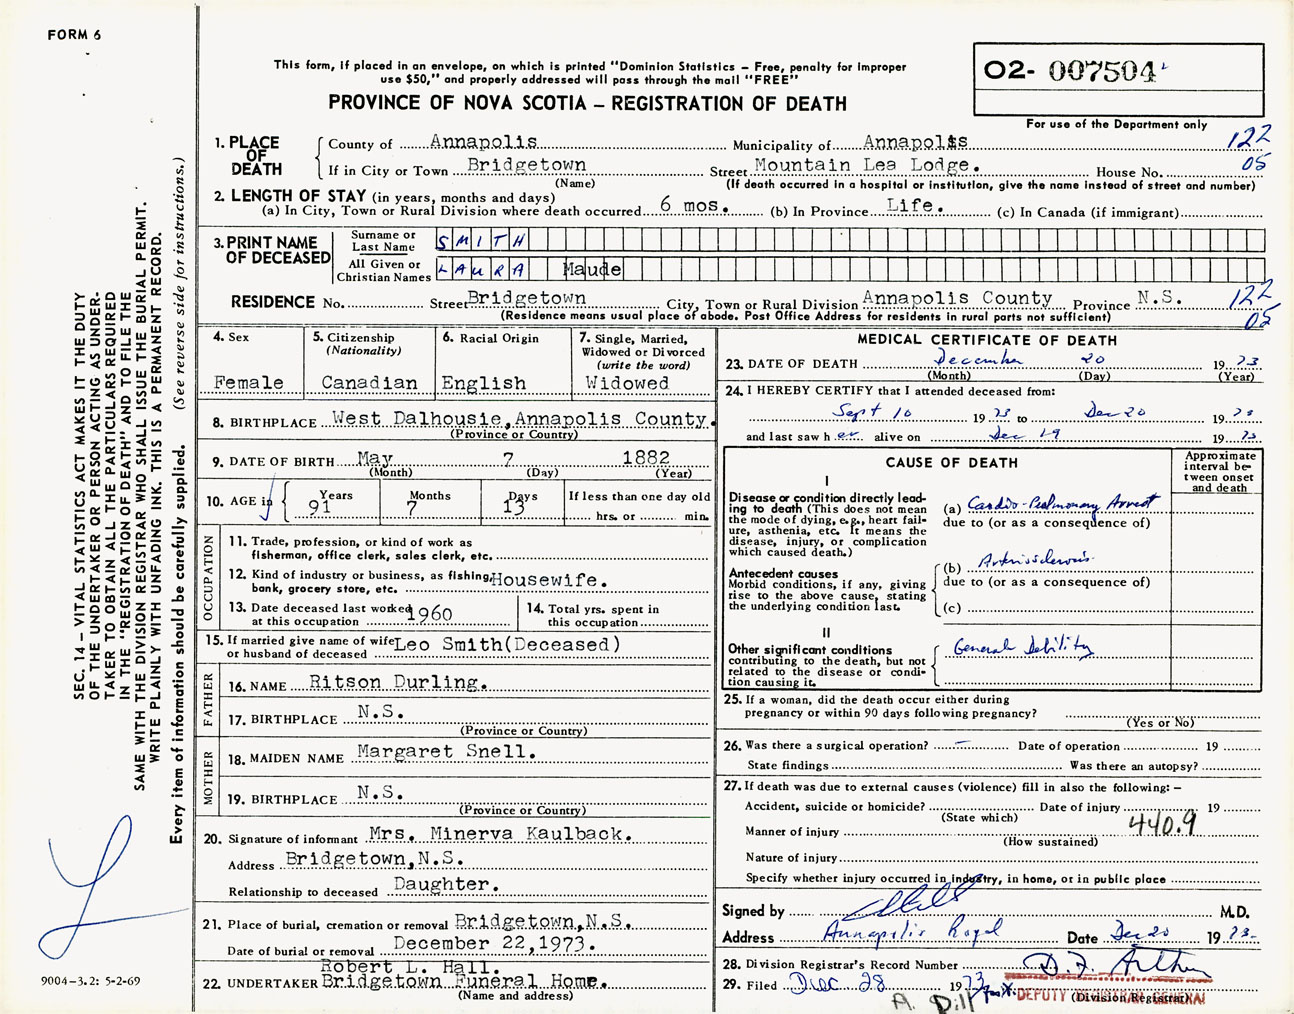 FORM 6
This form, if placed in an envelope, on which is printed "Dominion Statistics – Free, penalty for improper
use $50," and properly addressed will pass through the mail "FREE"
PROVINCE OF NOVA SCOTIA – REGISTRATION OF DEATH
02- 007504
For use of the Department only
SEC. 14 – VITAL STATISTICS ACT MAKES IT THE DUTY
OF THE UNDERTAKER OR PERSON ACTING AS UNDER-
TAKER TO OBTAIN ALL THE PARTICULARS REQUIRED
IN THE "REGISTRATION OF DEATH" AND TO FILE THE
SAME WITH THE DIVISION REGISTRAR WHO SHALL ISSUE THE BURIAL PERMIT.
WRITE PLAINLY WITH UNFADING INK. THIS IS A PERMANENT RECORD.
Every item of information should be carefully supplied. (See reverse side for instructions.)
1. PLACE OF DEATH
County of Annapolis Municipality of Annapolis 122
If in City or Town Bridgetown Street Mountain Lea Lodge. House No. 05
(Name) (If death occurred in a hospital or institution, give the name instead of street and number)
2. LENGTH OF STAY (in years, months and days)
(a) In City, Town or Rural Division where death occurred 6 mos. (b) In Province Life. (c) In Canada (if immigrant)
3. PRINT NAME OF DECEASED
Surname or Last Name SMITH
All Given or Christian Names LAURA Maude
RESIDENCE No. Street Bridgetown City, Town or Rural Division Annapolis County Province N.S. 122
(Residence means usual place of abode. Post Office Address for residents in rural parts not sufficient) 05
4. Sex
Female
5. Citizenship
(Nationality)
Canadian
6. Racial Origin
English
7. Single, Married,
Widowed or Divorced
(write the word)
Widowed
8. BIRTHPLACE West Dalhousie, Annapolis County.
(Province or Country)
9. DATE OF BIRTH May 7 1882
(Month) (Day) (Year)
10. AGE in
Years Months Days If less than one day old
91 7 13 hrs. or min.
OCCUPATION
11. Trade, profession, or kind of work as
fisherman, office clerk, sales clerk, etc.
12. Kind of industry or business, as fishing, Housewife.
bank, grocery store, etc.
13. Date deceased last worked 1960
at this occupation
14. Total yrs. spent in
this occupation
15. If married give name of wife Leo Smith(Deceased)
or husband of deceased
FATHER
16. NAME Ritson Durling.
17. BIRTHPLACE N.S.
(Province or Country)
MOTHER
18. MAIDEN NAME Margaret Snell.
19. BIRTHPLACE N.S.
(Province or Country)
20. Signature of informant Mrs. Minerva Kaulback.
Address Bridgetown, N.S.
Relationship to deceased Daughter.
21. Place of burial, cremation or removal Bridgetown, N.S.
Date of burial or removal December 22, 1973.
Robert L. Hall.
22. UNDERTAKER Bridgetown Funeral Home.
(Name and address)
9004-3.2: 5-2-69
MEDICAL CERTIFICATE OF DEATH
23. DATE OF DEATH December 20 19 73
(Month) (Day) (Year)
24. I HEREBY CERTIFY that I attended deceased from:
Sept 10 19 73 to Dec 20 19 73
and last saw h er alive on Dec 19 19 73
CAUSE OF DEATH
Approximate
interval be-
tween onset
and death
I
Disease or condition directly lead-
ing to death (This does not mean
the mode of dying, e.g., heart fail-
ure, asthenia, etc. It means the
disease, injury, or complication
which caused death.)
(a) Cardio-Pulmonary Arrest
due to (or as a consequence of)
Antecedent causes
Morbid conditions, if any, giving
rise to the above cause, stating
the underlying condition last.
(b) Arteriosclerosis
due to (or as a consequence of)
(c)
II
Other significant conditions
contributing to the death, but not
related to the disease or condi-
tion causing it.
General Debility
25. If a woman, did the death occur either during
pregnancy or within 90 days following pregnancy?
(Yes or No)
26. Was there a surgical operation? – Date of operation 19
State findings Was there an autopsy?
27. If death was due to external causes (violence) fill in also the following: –
Accident, suicide or homicide? Date of injury 19
(State which)
440.9
Manner of injury
(How sustained)
Nature of injury
Specify whether injury occurred in industry, in home, or in public place
Signed by M.D.
Address Annapolis Royal Date Dec 20 19 73.
28. Division Registrar's Record Number
29. Filed Dec 28 1973
DEPUTY REGISTRAR GENERAL
(Division Registrar)
A. Dill